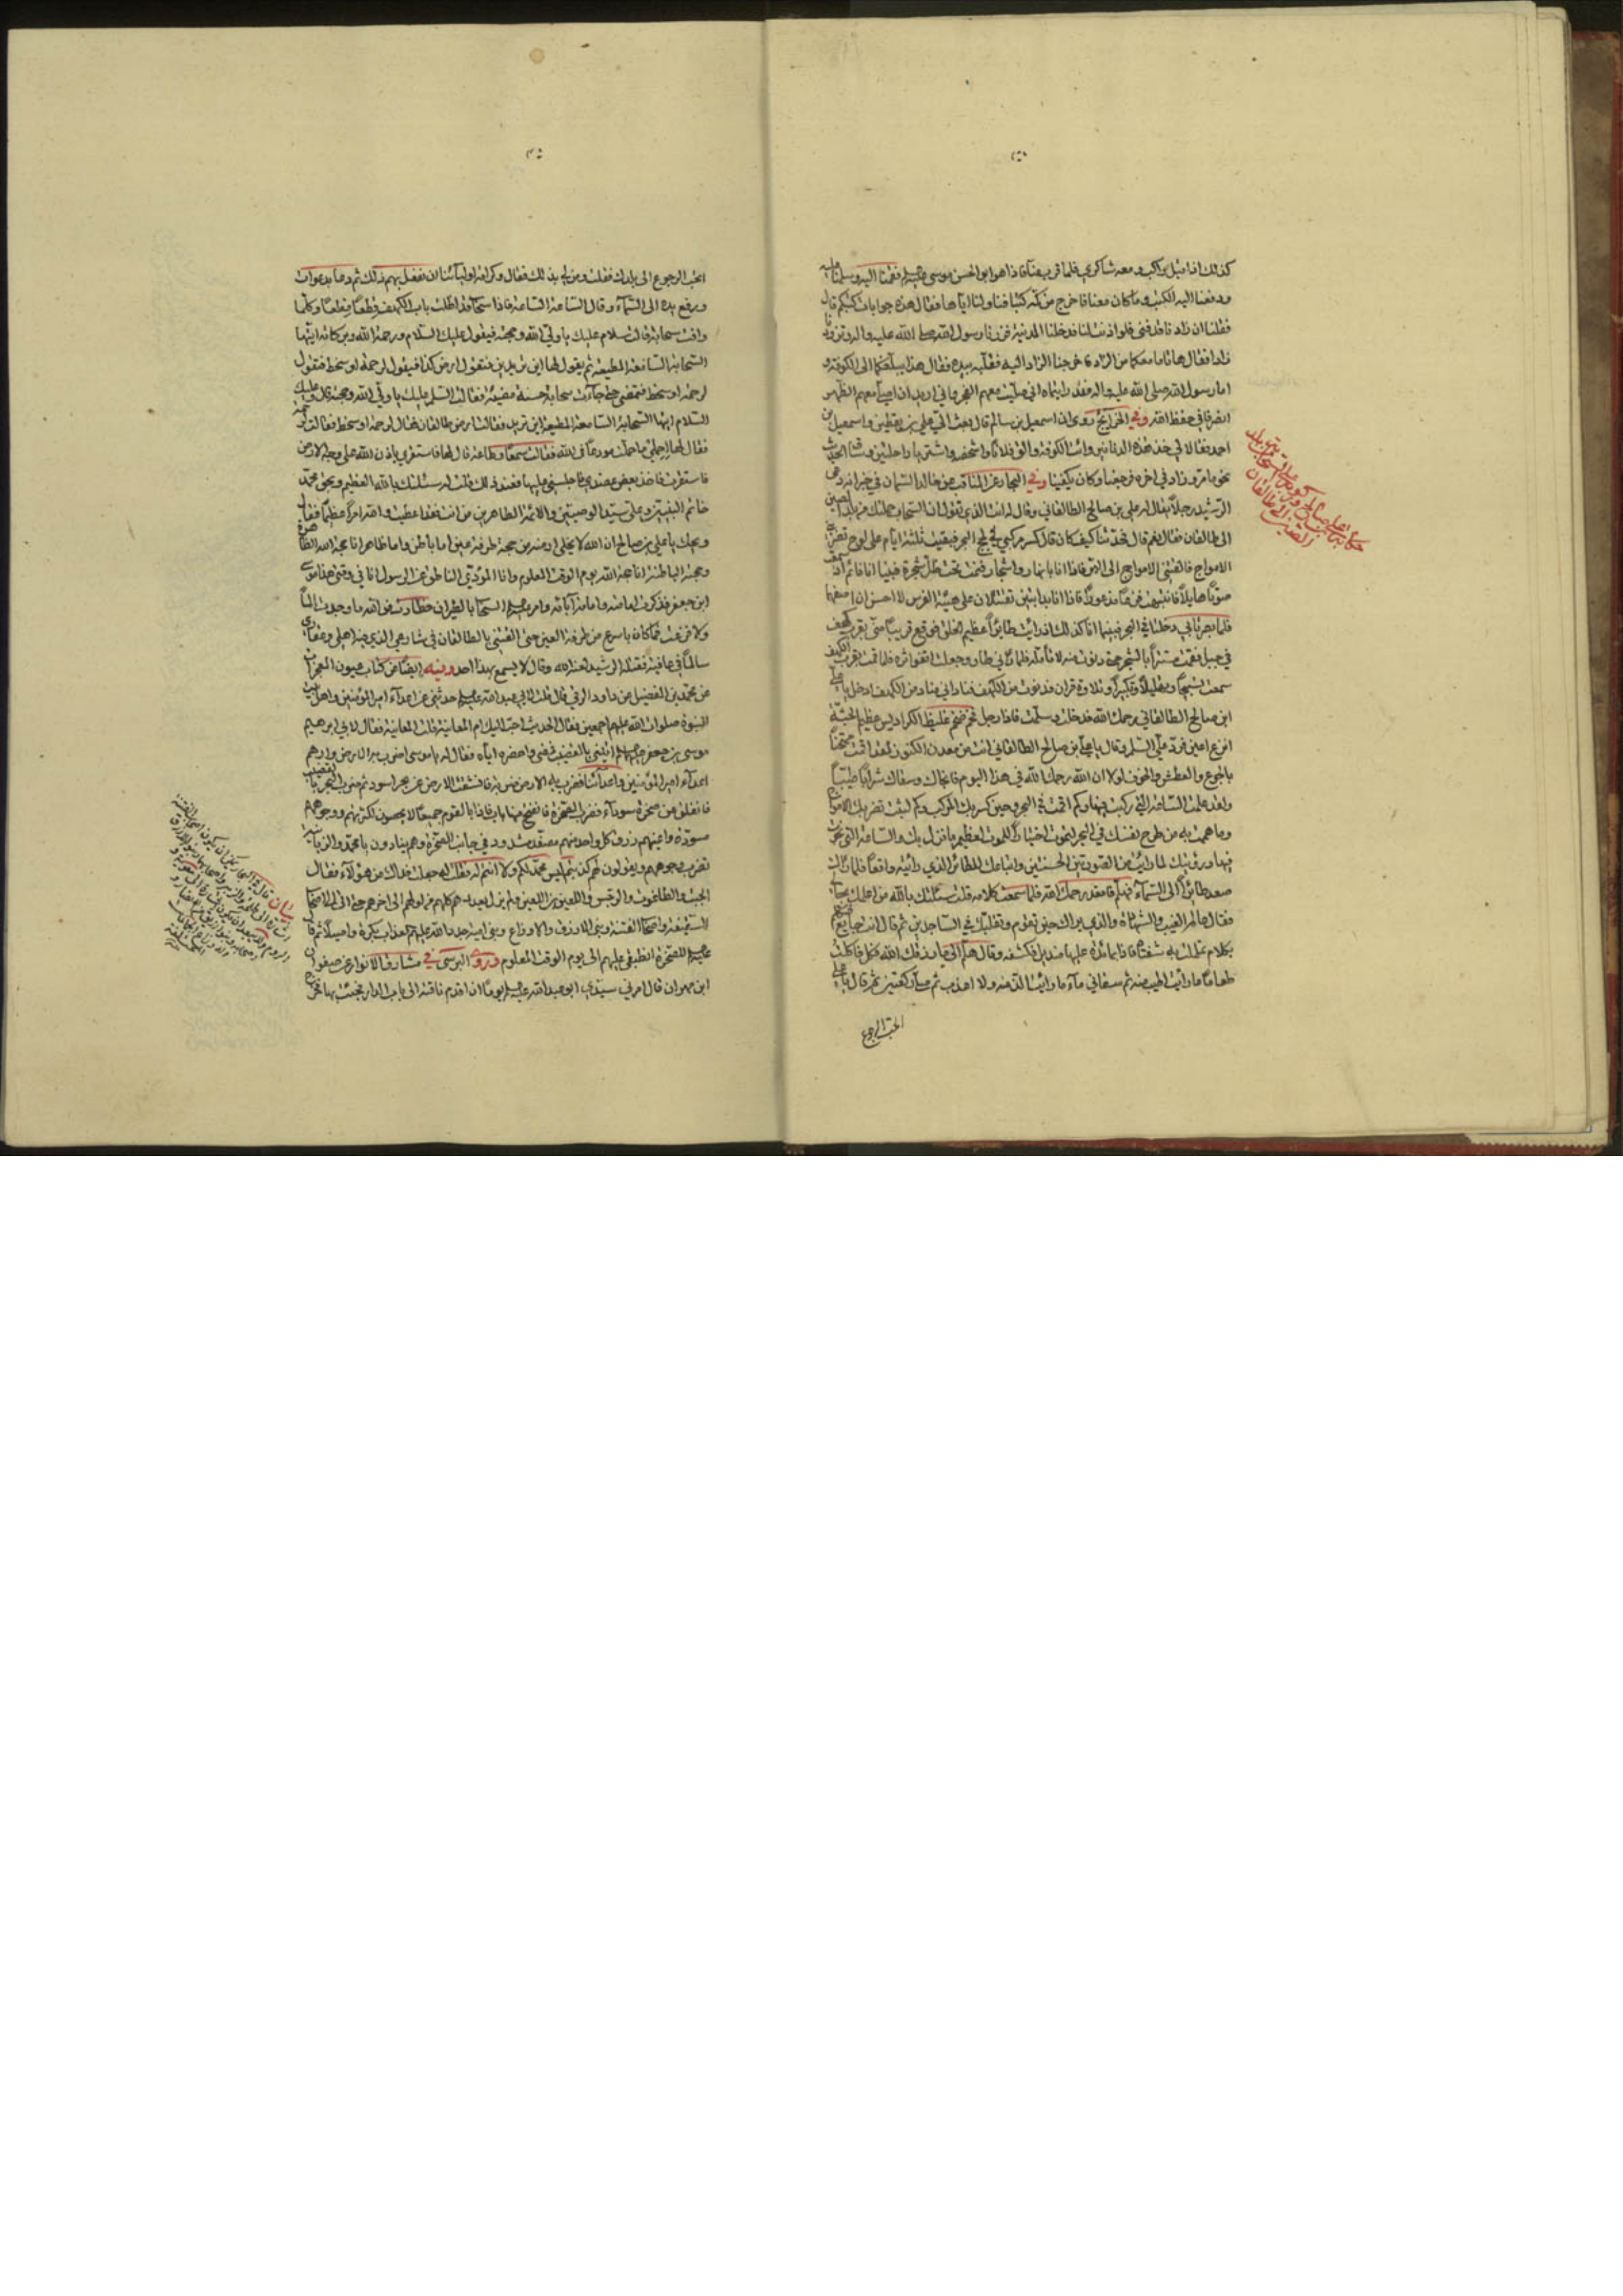 كذلك اذا قبل راكب ومعه شاكري فلما قرب منا فاذا هو ابو الحسن موسى عليه السلام فقمنا اليه وسلمنا عليه
ودفعنا اليه الكتب وما كان معنا فاخرج من كمه كتبا فناولنا اياها فقال هذه جوابات كتبكم قال
فقلنا ان زادنا قد فنى فلو اذنت لنا فدخلنا المدينة فزرنا رسول الله صلى الله عليه واله وتزودنا
زادا فقال هاتا ما معكما من الزاد فاخرجنا الزاد اليه فقلبه بيده فقال هذا يبلغكما الى الكوفة و
اما رسول الله صلى الله عليه واله فقد رايتماه اني صليت معهم الفجر واني اريد ان اصلي معهم الظهر
انصرفا في حفظ الله وفي الخرايج روى ان اسمعيل بن سالم قال بعث الي علي بن يقطين واسمعيل بن
احمد فقالا لي خذ هذه الدنانير وائت الكوفة والق فلانا واشخصه واشتريا راحلتين وساقا الحديث
نحوا مما مر وزاد في اخره فرجعنا وكان يكفينا وفي البحار عن المناقب عن خالد السمان في خبر انه دعى
الرشيد رجلا يقال له علي بن صالح الطالقاني وقال له انت الذي تقول ان السحاب حملتك من بلد الصين
الى طالقان فقال نعم قال فحدثنا كيف كان قال كسر مركبي في لجج البحر فبقيت ثلثة ايام على لوح تضربني
الامواج فالقتني الامواج الى البر فاذا انا بانهار واشجار فنمت تحت ظل شجرة فبينا انا نائم اذ سمعت
صوتا هايلا فانتبهت فزعا مذعورا فاذا انا بدابتين تقتتلان على هيئة الفرس لا احسن ان اصفهما
فلما بصرتا بي دخلتا في البحر فبينما انا كذلك اذ رايت طائرا عظيم الخلق فوقع قريبا مني بقرب كهف
في جبل فقمت مستترا بالشجر حتى دنوت منه لاتأمله فلما رآني طار وجعلت اقفو اثره فلما قمت بقرب الكهف
سمعت تسبيحا وتهليلا وتكبيرا وتلاوة قران فدنوت من الكهف فناداني مناد من الكهف ادخل يا علي
ابن صالح الطالقاني رحمك الله فدخلت وسلمت فاذا رجل فخم ضخم غليظ الكراديس عظيم الجثة
انزع اعين فرد علي السلم وقال يا علي بن صالح الطالقاني انت من معدن الكنوز ولقد اقمت ممتحنا
بالجوع والعطش والخوف لولا ان الله رحمك الله في هذا اليوم فانجاك وسقاك شرابا طيبا
ولقد علمت الساعة التي ركبت فيها وكم اقمت في البحر وحين كسر بك المركب وكم لبثت تضربك الامواج
وما هممت به من طرح نفسك في البحر لتموت اختيارا للموت لعظيم ما نزل بك والساعة التي نجوت
فيها ورؤيتك لما رايت من الصورتين الحسنتين واتباعك للطائر الذي رايته واقعا فلما رآك
صعد طائرا الى السماء فهلم فاقعد رحمك الله فلما سمعت كلامه قلت سئلتك بالله من اعلمك بحالي
فقال عالم الغيب والشهادة والذي يراك حين تقوم وتقلبك في الساجدين ثم قال انت جايع
بكلام تململت به شفتاه فاذا بمائدة عليها منديل فكشفه وقال هلم الى ما رزقك الله فكل فاكلت
طعاما ما رأيت اطيب منه ثم سقاني ماء ما رايت الذ منه ولا اعذب ثم صلى ركعتين ثم قال يا علي
اتحب الرجوع
اتحب الرجوع الى بلدك فقلت ومن لي بذلك فقال وكرامة اوليائنا ان نفعل بهم ذلك ثم دعا بدعوات
ورفع يده الى السماء وقال الساعة الساعة فاذا سحاب قد اظلت باب الكهف قطعا قطعا وكلما
وافت سحابة قالت سلام عليك يا ولي الله وحجته فيقول عليك السلام ورحمة الله وبركاته ايتها
السحابة السامعة المطيعة ثم يقول لها اين تريدين فتقول ارض كذا فيقول لرحمة او سخط فتقول
لرحمة او سخط فتمضي حتى جاءت سحابة حسنة مضيئة فقالت السلم عليك يا ولي الله وحجته قال وعليك
السلام ايتها السحابة السامعة المطيعة اين تريدين فقالت ارض طالقان فقال لرحمة او سخط فقالت لرحمة
فقال لها احملي ما حملت مودعا في الله فقالت سمعا وطاعة قال لها فاستقري باذن الله على وجه الارض
فاستقرت فاخذ بعض عضدي فاجلسني عليها فعند ذلك قلت له سئلتك بالله العظيم وبحق محمد
خاتم النبيين وعلي سيد الوصيين والائمة الطاهرين من انت فقد اعطيت والله امرا عظيما فقال
ويحك يا علي بن صالح ان الله لا يخلي ارضه من حجة طرفة عين اما باطن واما ظاهر انا حجة الله الظاهرة
وحجته الباطنة انا حجة الله يوم الوقت المعلوم وانا المؤدي الناطق عن الرسول انا في وقتي هذا موسى
ابن جعفر فذكرت امامته وامامة آبائه وامر عليه السلام السحاب بالطيران فطارت فوالله ما وجدت الما
ولا فزعت فما كان باسرع من طرفة العين حتى القتني بالطالقان في شارعي الذي فيه اهلي وعقاري
سالما في عافية فقتله الرشيد لعنه الله وقال لا يسمع بهذا احد وفيه ايضا عن كتاب عيون المعجزات
عن محمد بن الفضيل عن داود الرقي قال قلت لابي عبد الله عليه السلام حدثني عن اعداء امير المؤمنين واهل بيت
النبوة صلوات الله عليهم اجمعين فقال الحديث احب اليك ام المعاينة قلت المعاينة فقال لابي ابرهيم
موسى بن جعفر عليه السلام ائتني بالقضيب فمضى واحضره اياه فقال له يا موسى اضرب به الارض وارهم
اعداء امير المؤمنين واعدائنا فضرب به الارض ضربة فانشقت الارض عن بحر اسود ثم ضرب البحر بالقضيب
فانفلق عن صخرة سوداء فضرب الصخرة فانفتح منها باب فاذا بالقوم جميعا لا يحصون لكثرتهم ووجوههم
مسودة واعينهم زرق كل واحد منهم مصفد مشدود في جانب الصخرة وهم ينادون يا محمد والزبانية
تضرب وجوههم ويقولون لهم كذبتم ليس محمد لكم ولا انتم له فقلت له جعلت فداك من هؤلاء فقال
الجبت والطاغوت والرجس واللعين بن اللعين ولم يزل يعددهم كلهم من اولهم الى اخرهم حتى اتى الى اصحاب
السقيفة واصحاب الفتنة وبني الازرق والاوزاع وبني امية جدد الله عليهم العذاب بكرة واصيلا ثم قال
عليه السلام للصخرة انطبقي عليهم الى يوم الوقت المعلوم وروى البرسي في مشارق الانوار عن صفوان
ابن مهران قال امرني سيدي ابو عبد الله عليه السلام يوما ان اقدم ناقته الى باب الدار فجئت بها فخرج